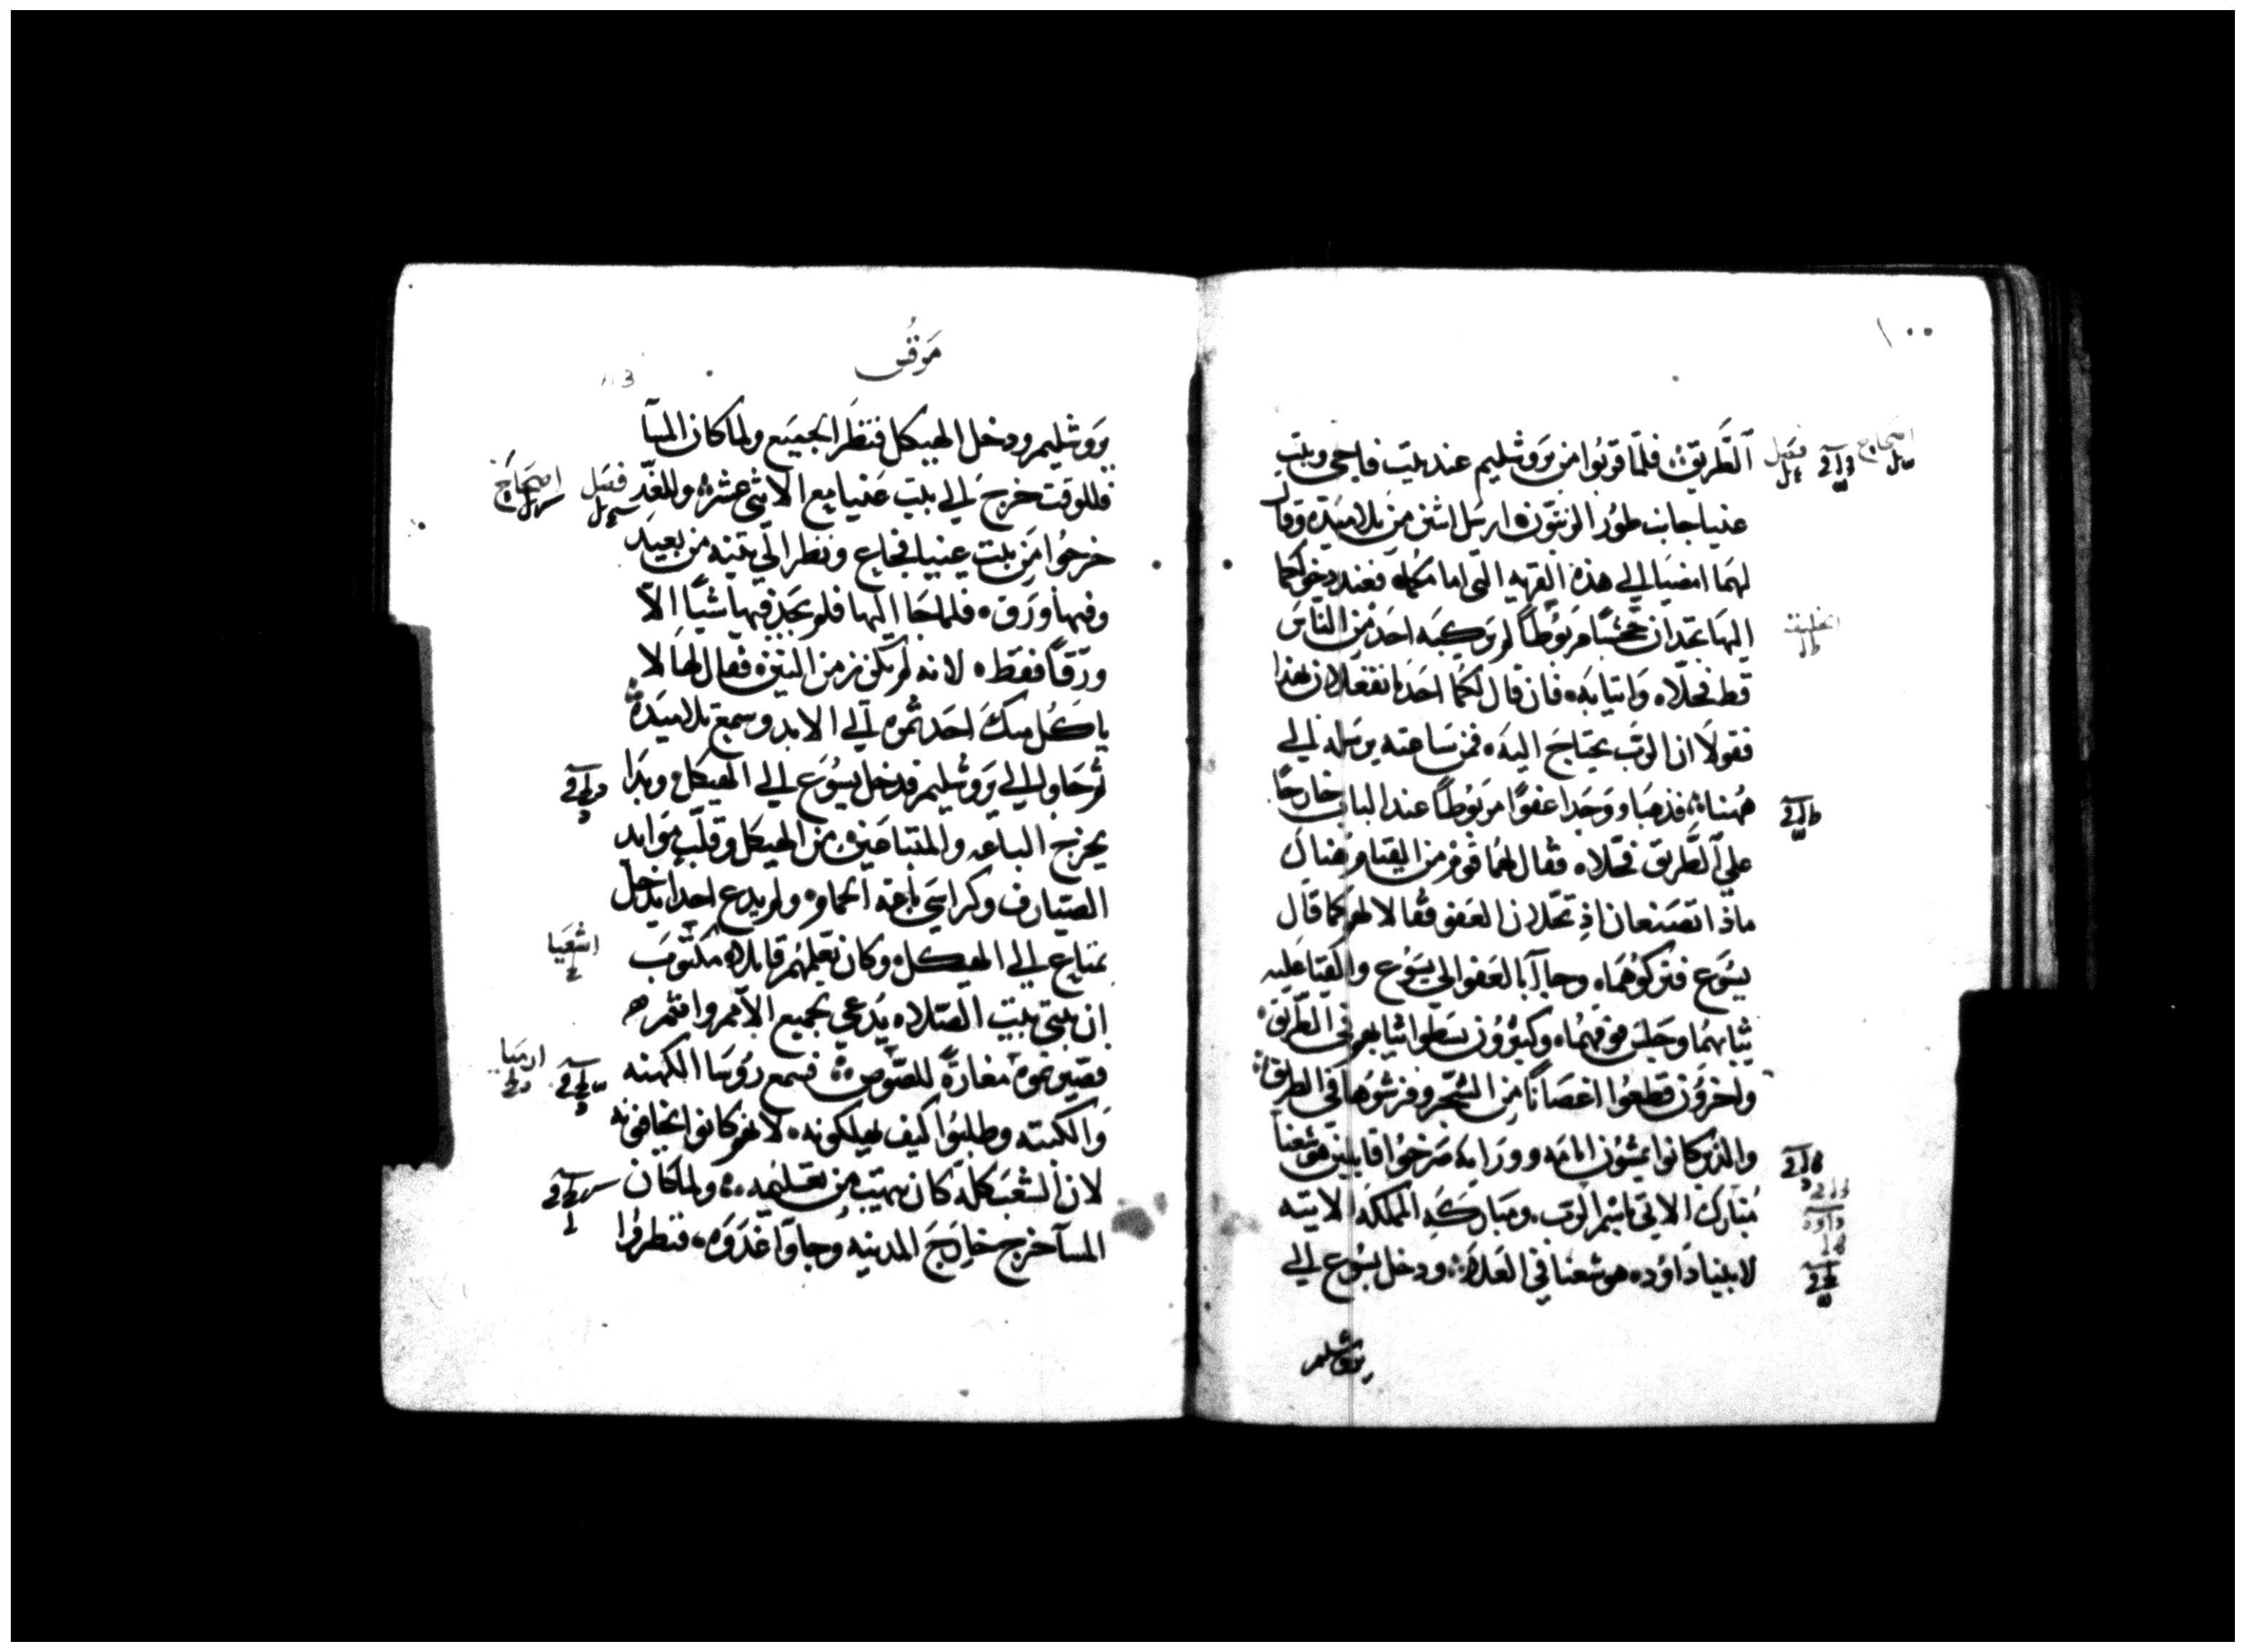 ١٠٠
الطريق فلما قربوا من يروشليم عند بيت فاجي وبيت
عنيا جانب طور الزيتون ارسل اثنين من تلاميذه وقال
لهما امضيا الي هذه القريه التي امامكما فعند دخولكما
اليها تجدان جحشًا مربوطًا لم يركبه احد من الناس
قط فحلاه واتيا به فان قال لكما احد ما تفعلان بهذا
فقولا ان الرب يحتاج اليه فمن ساعته يرسله الي
ههنا فذهبا ووجدا عفوًا مربوطًا عند الباب خارجًا
علي الطريق فحلاه فقال لهما قوم من القيام هناك
ماذا تصنعان اذ تحلان العفو فقالا لهم كما قال
يسوع فتركوهما وجاآ بالعفو الي يسوع والقيا عليه
ثيابهما وجلس فوقهما وكثيرون بسطوا ثيابهم في الطريق
واخرون قطعوا اغصانًا من الشجر وفرشوها في الطريق
والذين كانوا يمشون امامه ووراه صرخوا قايلين هوشعنا
مبارك الاتي باسم الرب ومباركه المملكه الاتيه
لابينا داوُد هوشعنا في العلاه ودخل يسوع الي
يروشليم
اصحاح
فصل
داود
مرقس
يروشليم ودخل الهيكل فنظر الجميع ولما كان المسآ
فللوقت خرج الي بيت عنيا مع الاثني عشره وللغد
خرجوا من بيت عنيا فجاع ونظر الي تينه من بعيد
وفيها ورق فلما جا اليها فلم يجد فيها شيًا الا
ورقًا فقط لانه لم يكن زمن التين فقال لها لا
ياكل منك احد ثمره الي الابد وسمع تلاميذه
ثم جاوا الي يروشليم فدخل يسوع الي الهيكل وبدا
يخرج الباعه والمتباعين من الهيكل وقلب موايد
الصيارف وكراسي باعة الحمام ولم يدع احدا يدخل
بمتاع الي الهيكل وكان يعلمهم قايلا مكتوب
ان بيتي بيت الصلاه يدعي لجميع الامم وانتم
فصيرتموه مغارةً للصوص فسمع روسا الكهنه
والكتبه وطلبوا كيف يهلكونه لانهم كانوا يخافونه
لان الشعب كله كان يبهت من تعليمه ولما كان
المسآ خرج خارج المدينه وجاوا غدوه فنظروا
فصل
اصحاح
اشعيا
ارميا